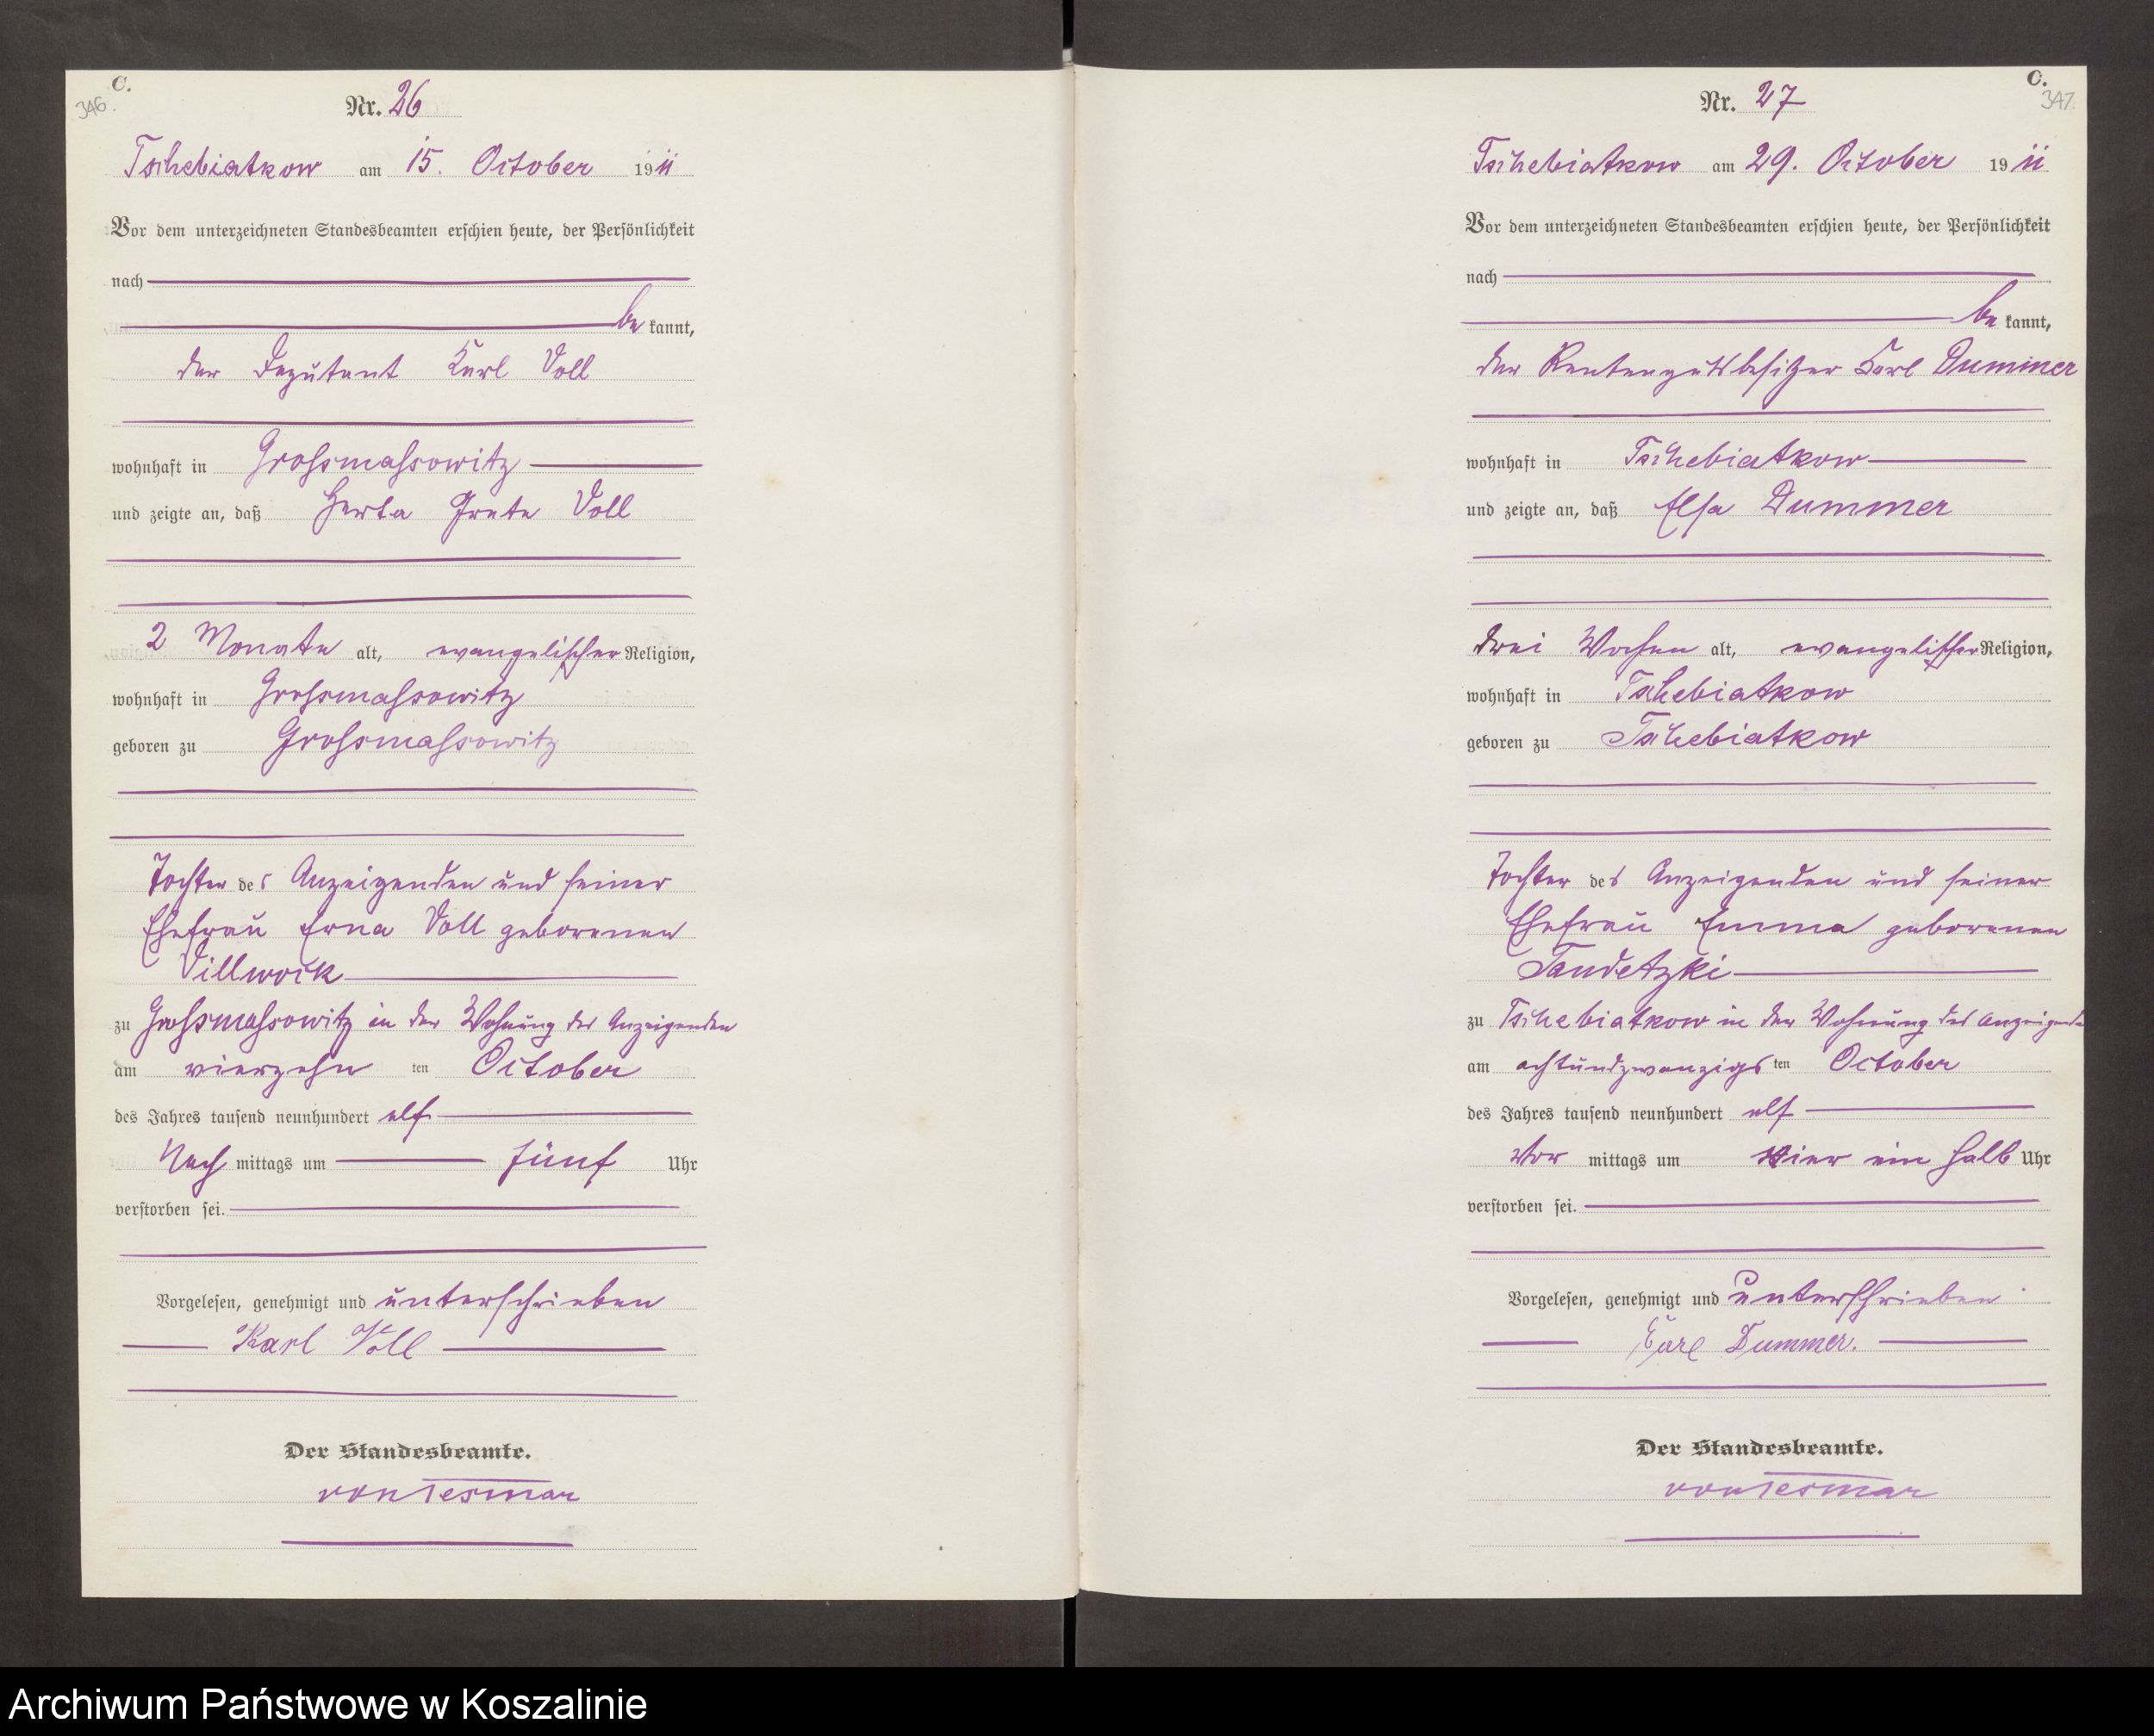 C.
346.
Nr. 26
Tschebiatkow am 15. October 1911
Vor dem unterzeichneten Standesbeamten erschien heute, der Persönlichkeit
nach
be kannt,
der Deputant Karl Voll
wohnhaft in Grossmassowitz
und zeigte an, daß Herta Grete Voll
2 Monate alt, evangelischer Religion,
wohnhaft in Grossmassowitz
geboren zu Grossmassowitz
Tochter des Anzeigenden und seiner
Ehefrau Erna Voll geborenen
Villwock
zu Grossmassowitz in der Wohnung des Anzeigenden
am vierzehn ten October
des Jahres tausend neunhundert elf
Nach mittags um fünf Uhr
verstorben sei.
Vorgelesen, genehmigt und unterschrieben
Karl Voll
Der Standesbeamte.
von Tesmar
C.
347.
Nr. 27
Tschebiatkow am 29. October 1911
Vor dem unterzeichneten Standesbeamten erschien heute, der Persönlichkeit
nach
be kannt,
der Rentengutsbesitzer Karl Dummer
wohnhaft in Tschebiatkow
und zeigte an, daß Elsa Dummer
drei Wochen alt, evangelischer Religion,
wohnhaft in Tschebiatkow
geboren zu Tschebiatkow
Tochter des Anzeigenden und seiner
Ehefrau Emma geborenen
Tandetzki
zu Tschebiatkow in der Wohnung des Anzeigenden
am achtundzwanzigs ten October
des Jahres tausend neunhundert elf
Vor mittags um vier ein halb Uhr
verstorben sei.
Vorgelesen, genehmigt und unterschrieben
Karl Dummer.
Der Standesbeamte.
von Tesmar
Archiwum Państwowe w Koszalinie